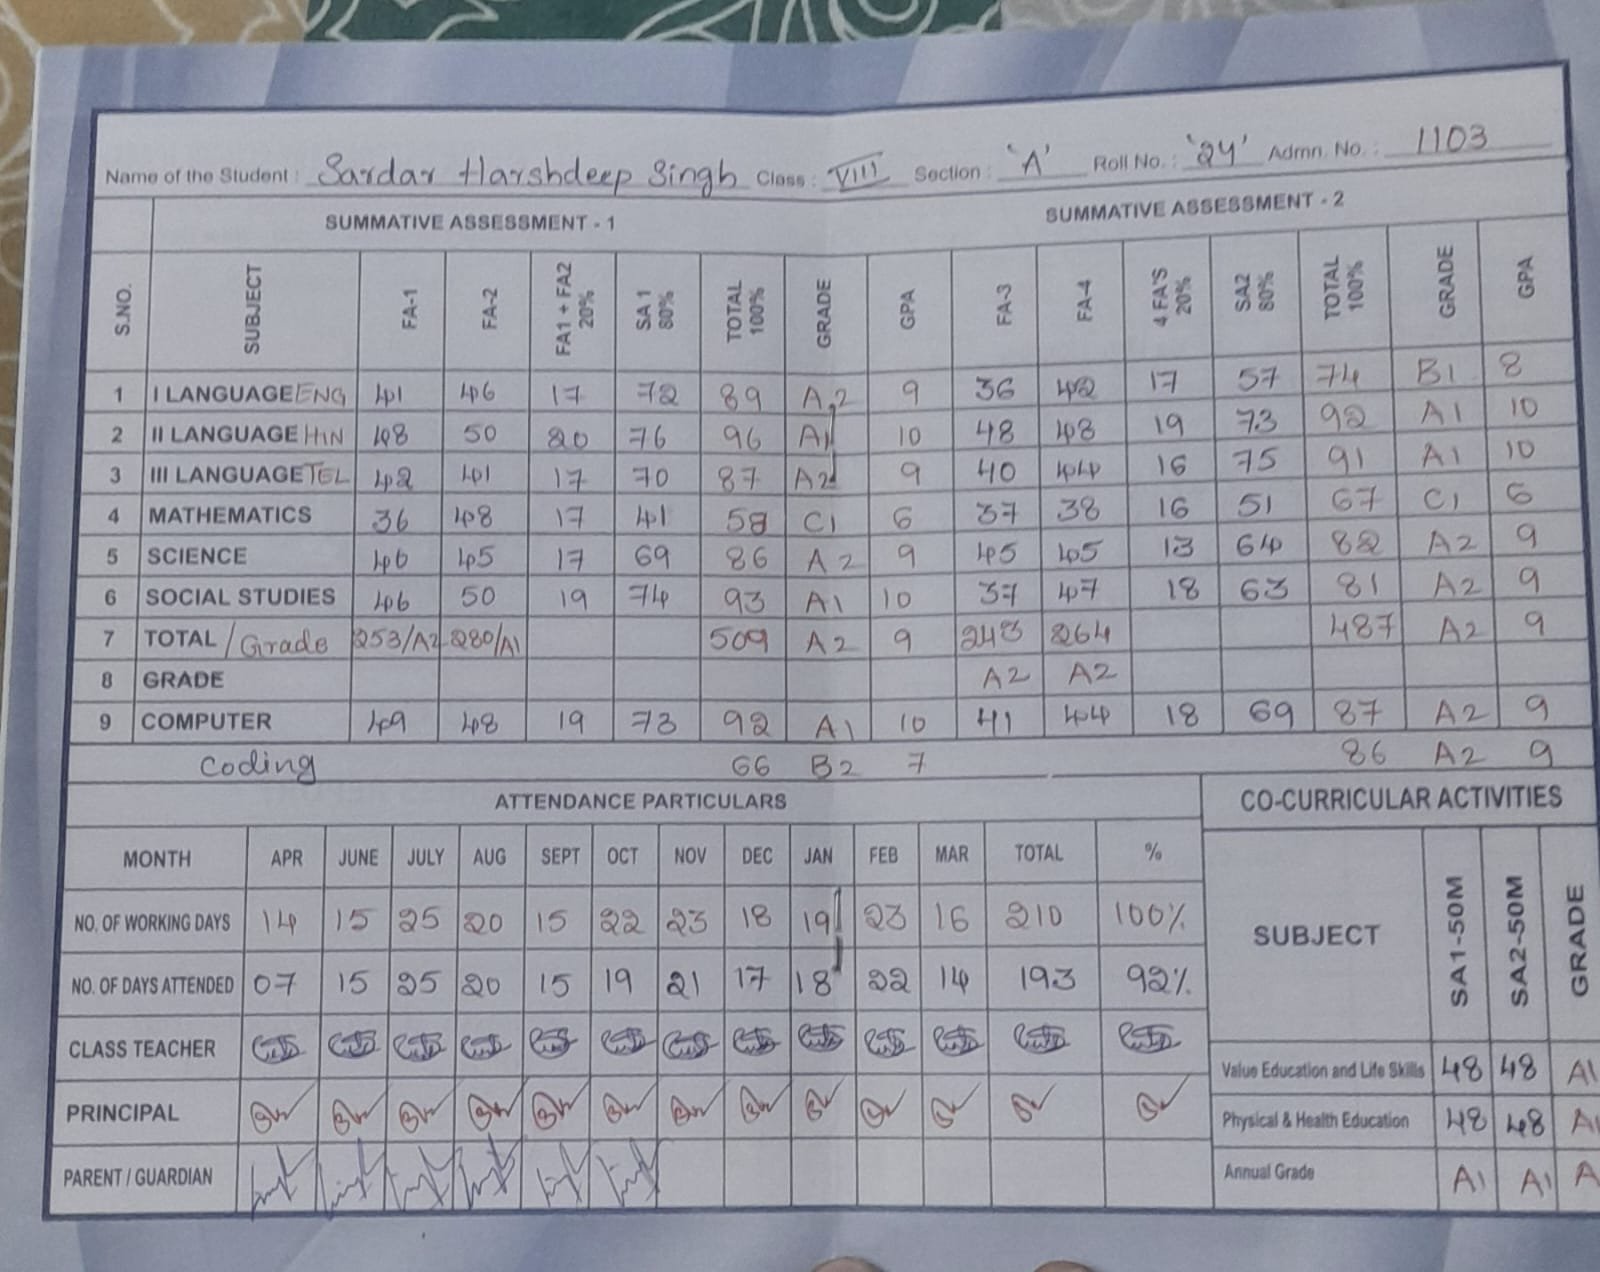 Name of the Student : Sardar Harshdeep Singh Class : VIII Section : 'A' Roll No. : '24' Admn. No. : 1103
SUMMATIVE ASSESSMENT - 1 SUMMATIVE ASSESSMENT - 2
S.NO. SUBJECT FA-1 FA-2 FA1 + FA2 20% SA 1 80% TOTAL 100% GRADE GPA FA-3 FA-4 4 FA'S 20% SA2 80% TOTAL 100% GRADE GPA
1 I LANGUAGE ENG 41 46 17 72 89 A2 9 36 42 17 57 74 B1 8
2 II LANGUAGE HIN 48 50 20 76 96 A1 10 48 48 19 73 92 A1 10
3 III LANGUAGE TEL 42 41 17 70 87 A2 9 40 44 16 75 91 A1 10
4 MATHEMATICS 36 48 17 41 58 C1 6 37 38 16 51 67 C1 6
5 SCIENCE 40 45 17 69 86 A2 9 45 45 13 64 82 A2 9
6 SOCIAL STUDIES 46 50 19 74 93 A1 10 37 47 18 63 81 A2 9
7 TOTAL / Grade 253/A2 280/A1 509 A2 9 243 264 487 A2 9
8 GRADE A2 A2
9 COMPUTER 49 48 19 73 92 A1 10 41 44 18 69 87 A2 9
Coding 66 B2 7 86 A2 9
ATTENDANCE PARTICULARS
MONTH APR JUNE JULY AUG SEPT OCT NOV DEC JAN FEB MAR TOTAL %
NO. OF WORKING DAYS 14 15 25 20 15 22 23 18 19 23 16 210 100%
NO. OF DAYS ATTENDED 07 15 25 20 15 19 21 17 18 22 14 193 92%
CLASS TEACHER
PRINCIPAL
PARENT / GUARDIAN
CO-CURRICULAR ACTIVITIES
SUBJECT SA1-50M SA2-50M GRADE
Value Education and Life Skills 48 48 A1
Physical & Health Education 48 48 A1
Annual Grade A1 A1 A